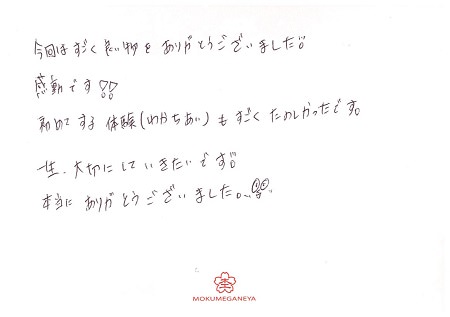 今回はすごく良い物をありがとうございました!!
感動です!!
初めてする体験(わかちあい)もすごくたのしかったです。
一生、大切にしていきたいです!!
本当にありがとうございました。
MOKUMEGANEYA